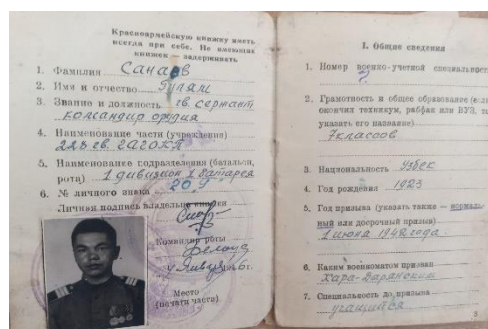 Красноармейскую книжку иметь
всегда при себе. Не имеющих
книжек — задерживать
1. Фамилия Санаев
2. Имя и отчество Гулям
3. Звание и должность гв. сержант
командир орудия
4. Наименование части (учреждения)
228 гв.
5. Наименование подразделения (батальон,
рота) 1 дивизион 1 батарея
6. № личного знака
Личная подпись владельца книжки
Командир роты
Место
(печати части)
I. Общие сведения
1. Номер военно-учетной специальности
?
2. Грамотность и общее образование (если
окончил техникум, рабфак или ВУЗ, то
указать его название)
7 классов
3. Национальность Узбек
4. Год рождения 1923
5. Год призыва (указать также — нормаль-
ный или досрочный призыв)
1 июня 1942 года
6. Каким военкоматом призван
Кара-Дарьинским
7. Специальность до призыва
учащийся